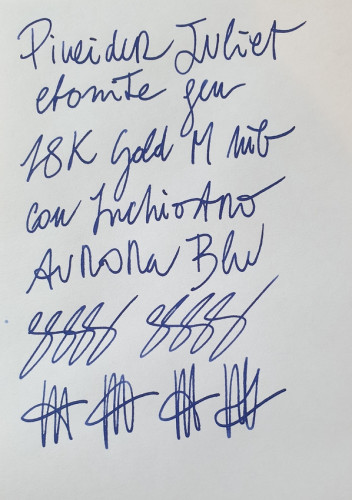 Pineider Juliet
etomite gen
18K Gold M nib
con Inchiostro
Aurora Blu